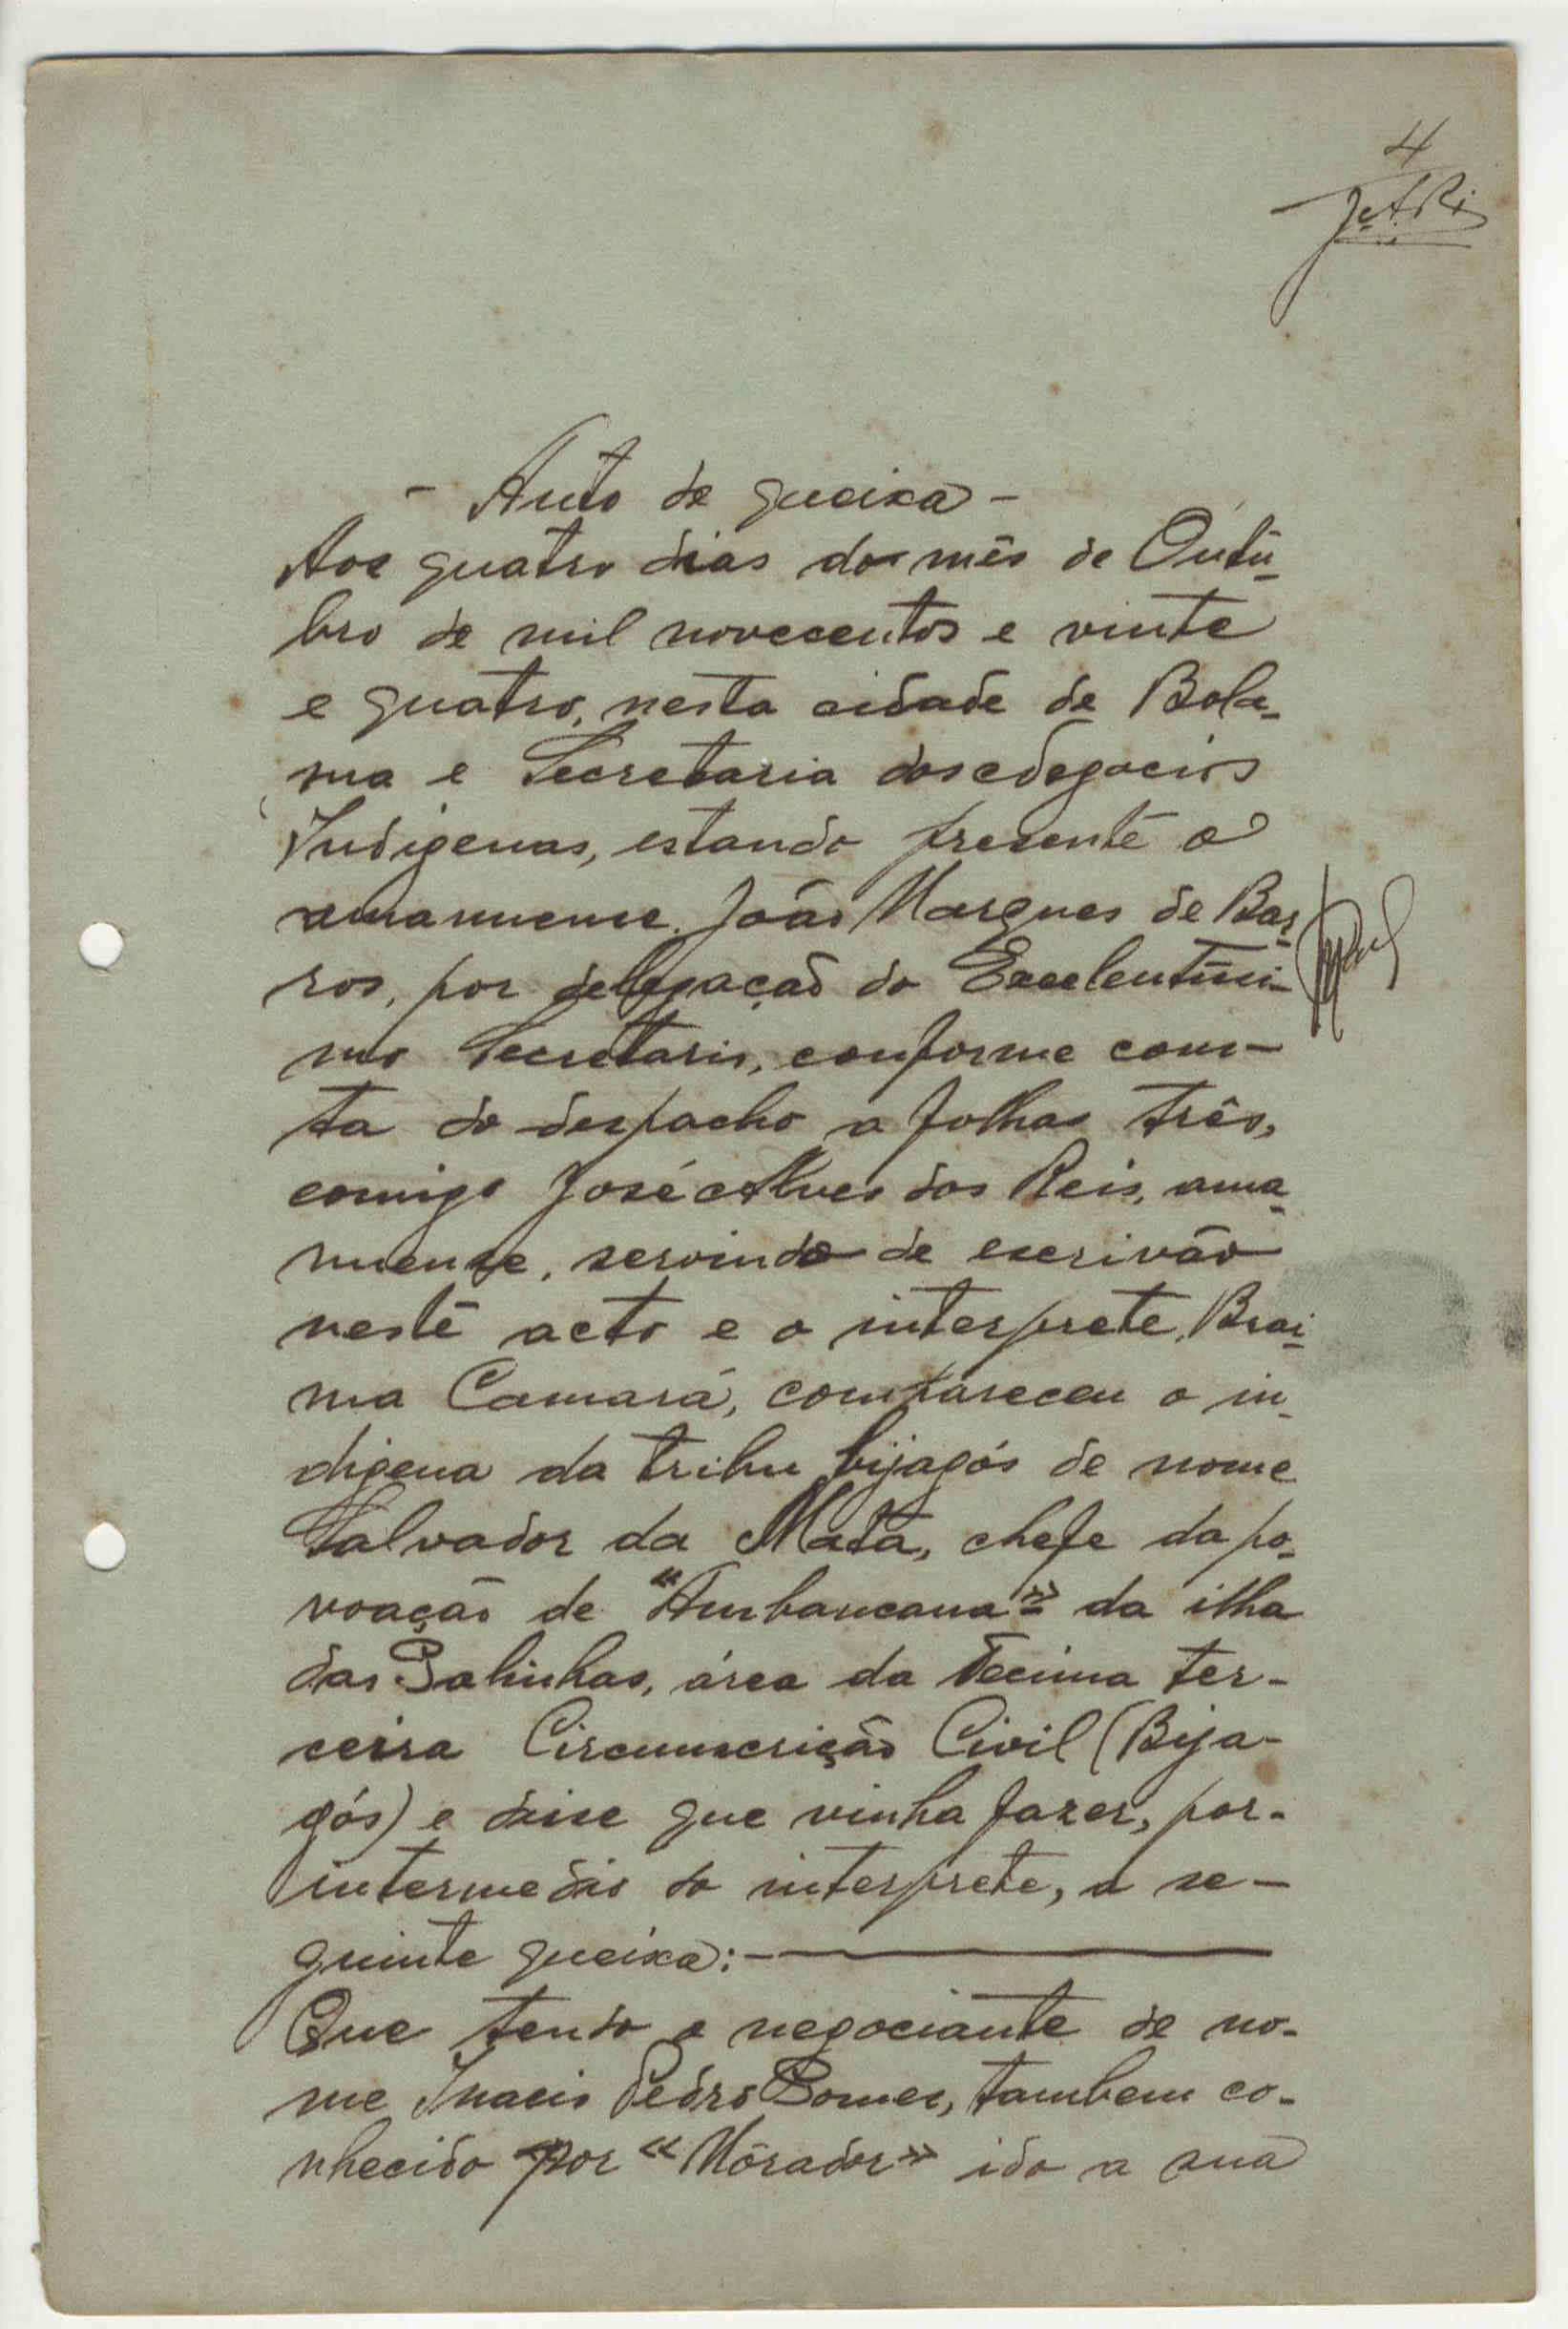 4
J. A. Reis
- Auto de queixa -
Aos quatro dias do mês de Outu-
bro de mil novecentos e vinte
e quatro, nesta cidade de Bola-
ma e Secretaria dos Negocios
Indigenas, estando presente o
amanuense João Marques de Bar-
ros, por delegação do Excelentissi-
mo Secretario, conforme cons-
ta do despacho a folhas três,
comigo José Alves dos Reis, ama-
nuense, servindo de escrivão
neste acto e o interprete, Brai-
ma Camará, compareceu o in-
digena da tribu bijagós de nome
Salvador da Mata, chefe da po-
voação de "Ambancana" da ilha
das Galinhas, área da Decima ter-
ceira Circunscrição Civil (Bija-
gós) e disse que vinha fazer, por-
intermedio do interprete, a se-
guinte queixa:-
Que tendo o negociante de no-
me Inacio Pedro Gomes, tambem co-
nhecido por «Môrador» ido a sua